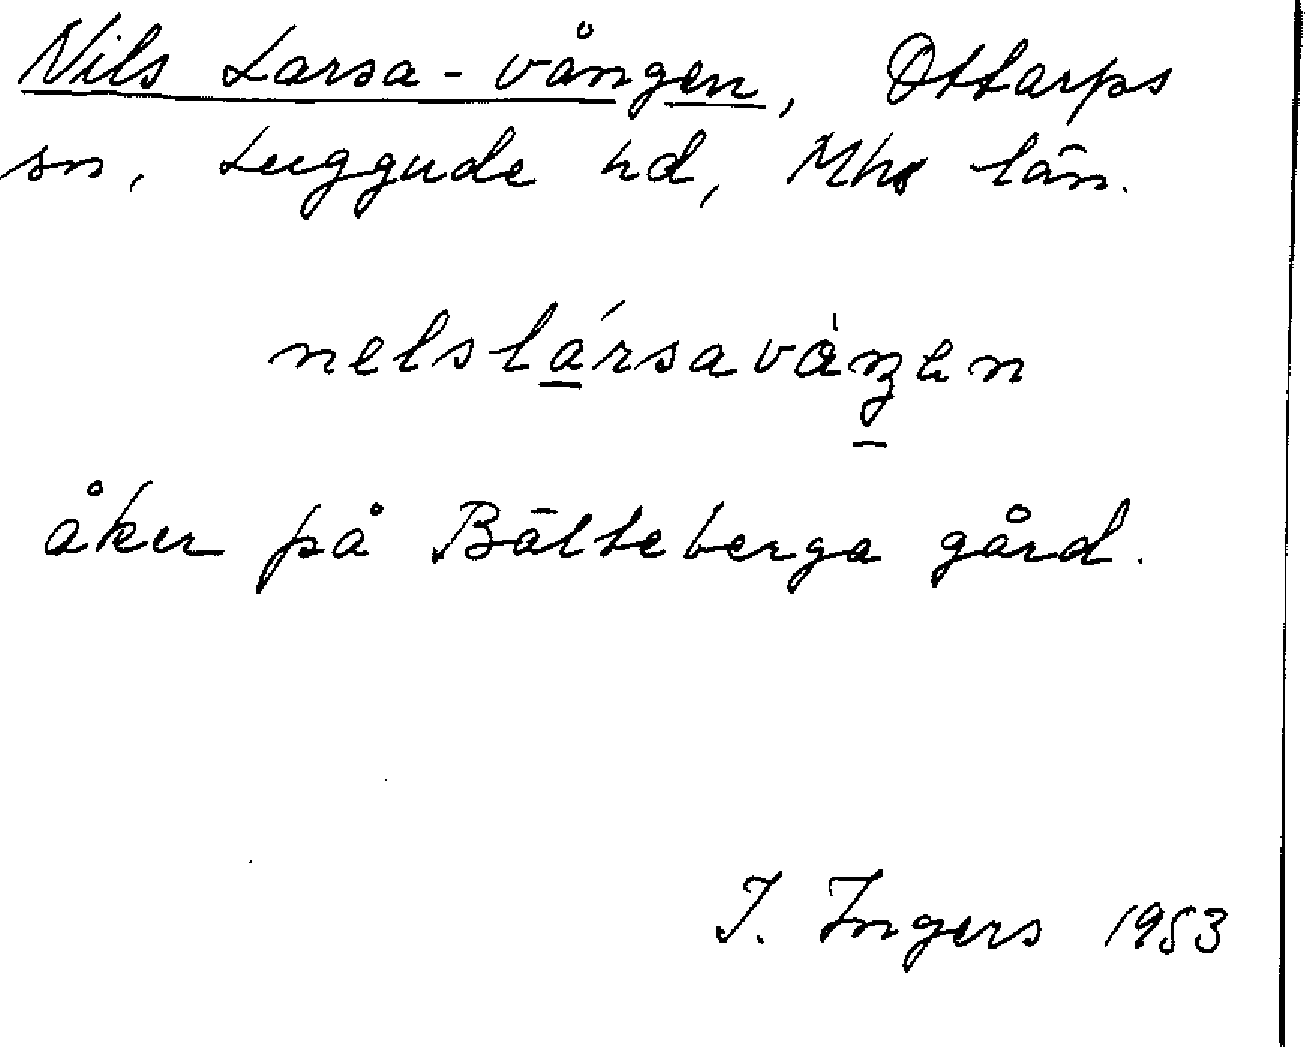 Nils Larsa-vången, Ottarps
sn, Luggude hd, Mhs län.
nelslársavàŋen
åker på Bälteberga gård.
I. Ingers 1953